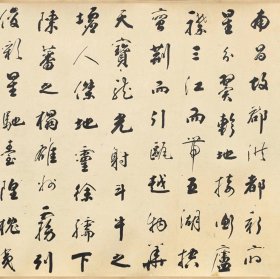 南昌故郡洪都新府
星分翼軫地接衡廬
襟三江而帶五湖控
蠻荊而引甌越物華
天寶龍光射斗牛之
墟人傑地靈徐孺下
陳蕃之榻雄州霧列
俊彩星馳臺隍枕夷